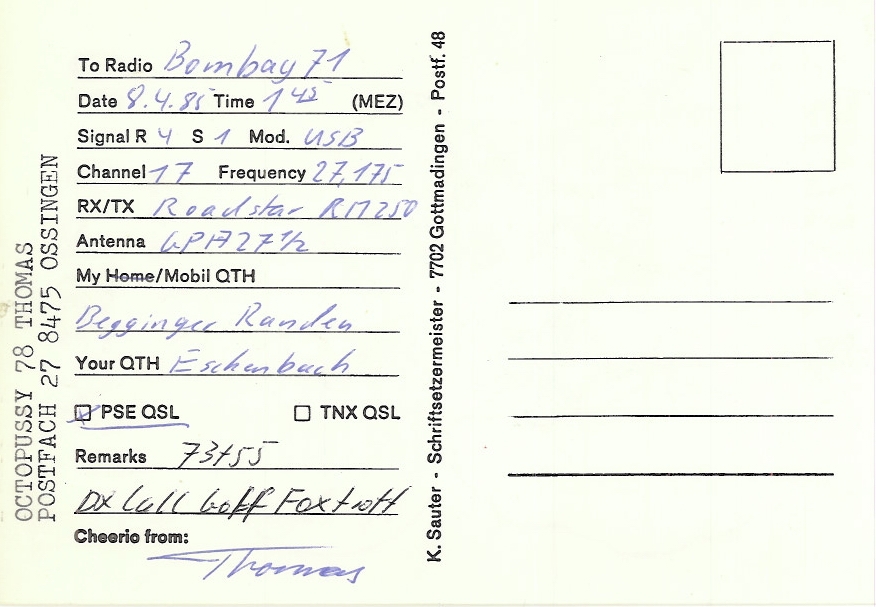 To Radio Bombay 71
Date 8.4.85 Time 1 45 (MEZ)
Signal R 4 S 1 Mod. USB
Channel 17 Frequency 27,175
RX/TX Roadstar RM250
Antenna GPA27 1/2
My Home/Mobil QTH
Begginger Randen
Your QTH Eschenbach
PSE QSL TNX QSL
Remarks 73+55
DX Call Golf Foxtrott
Cheerio from:
Thomas
OCTOPUSSY 78 THOMAS
POSTFACH 27 8475 OSSINGEN
K. Sauter - Schriftsetzermeister - 7702 Gottmadingen - Postf. 48